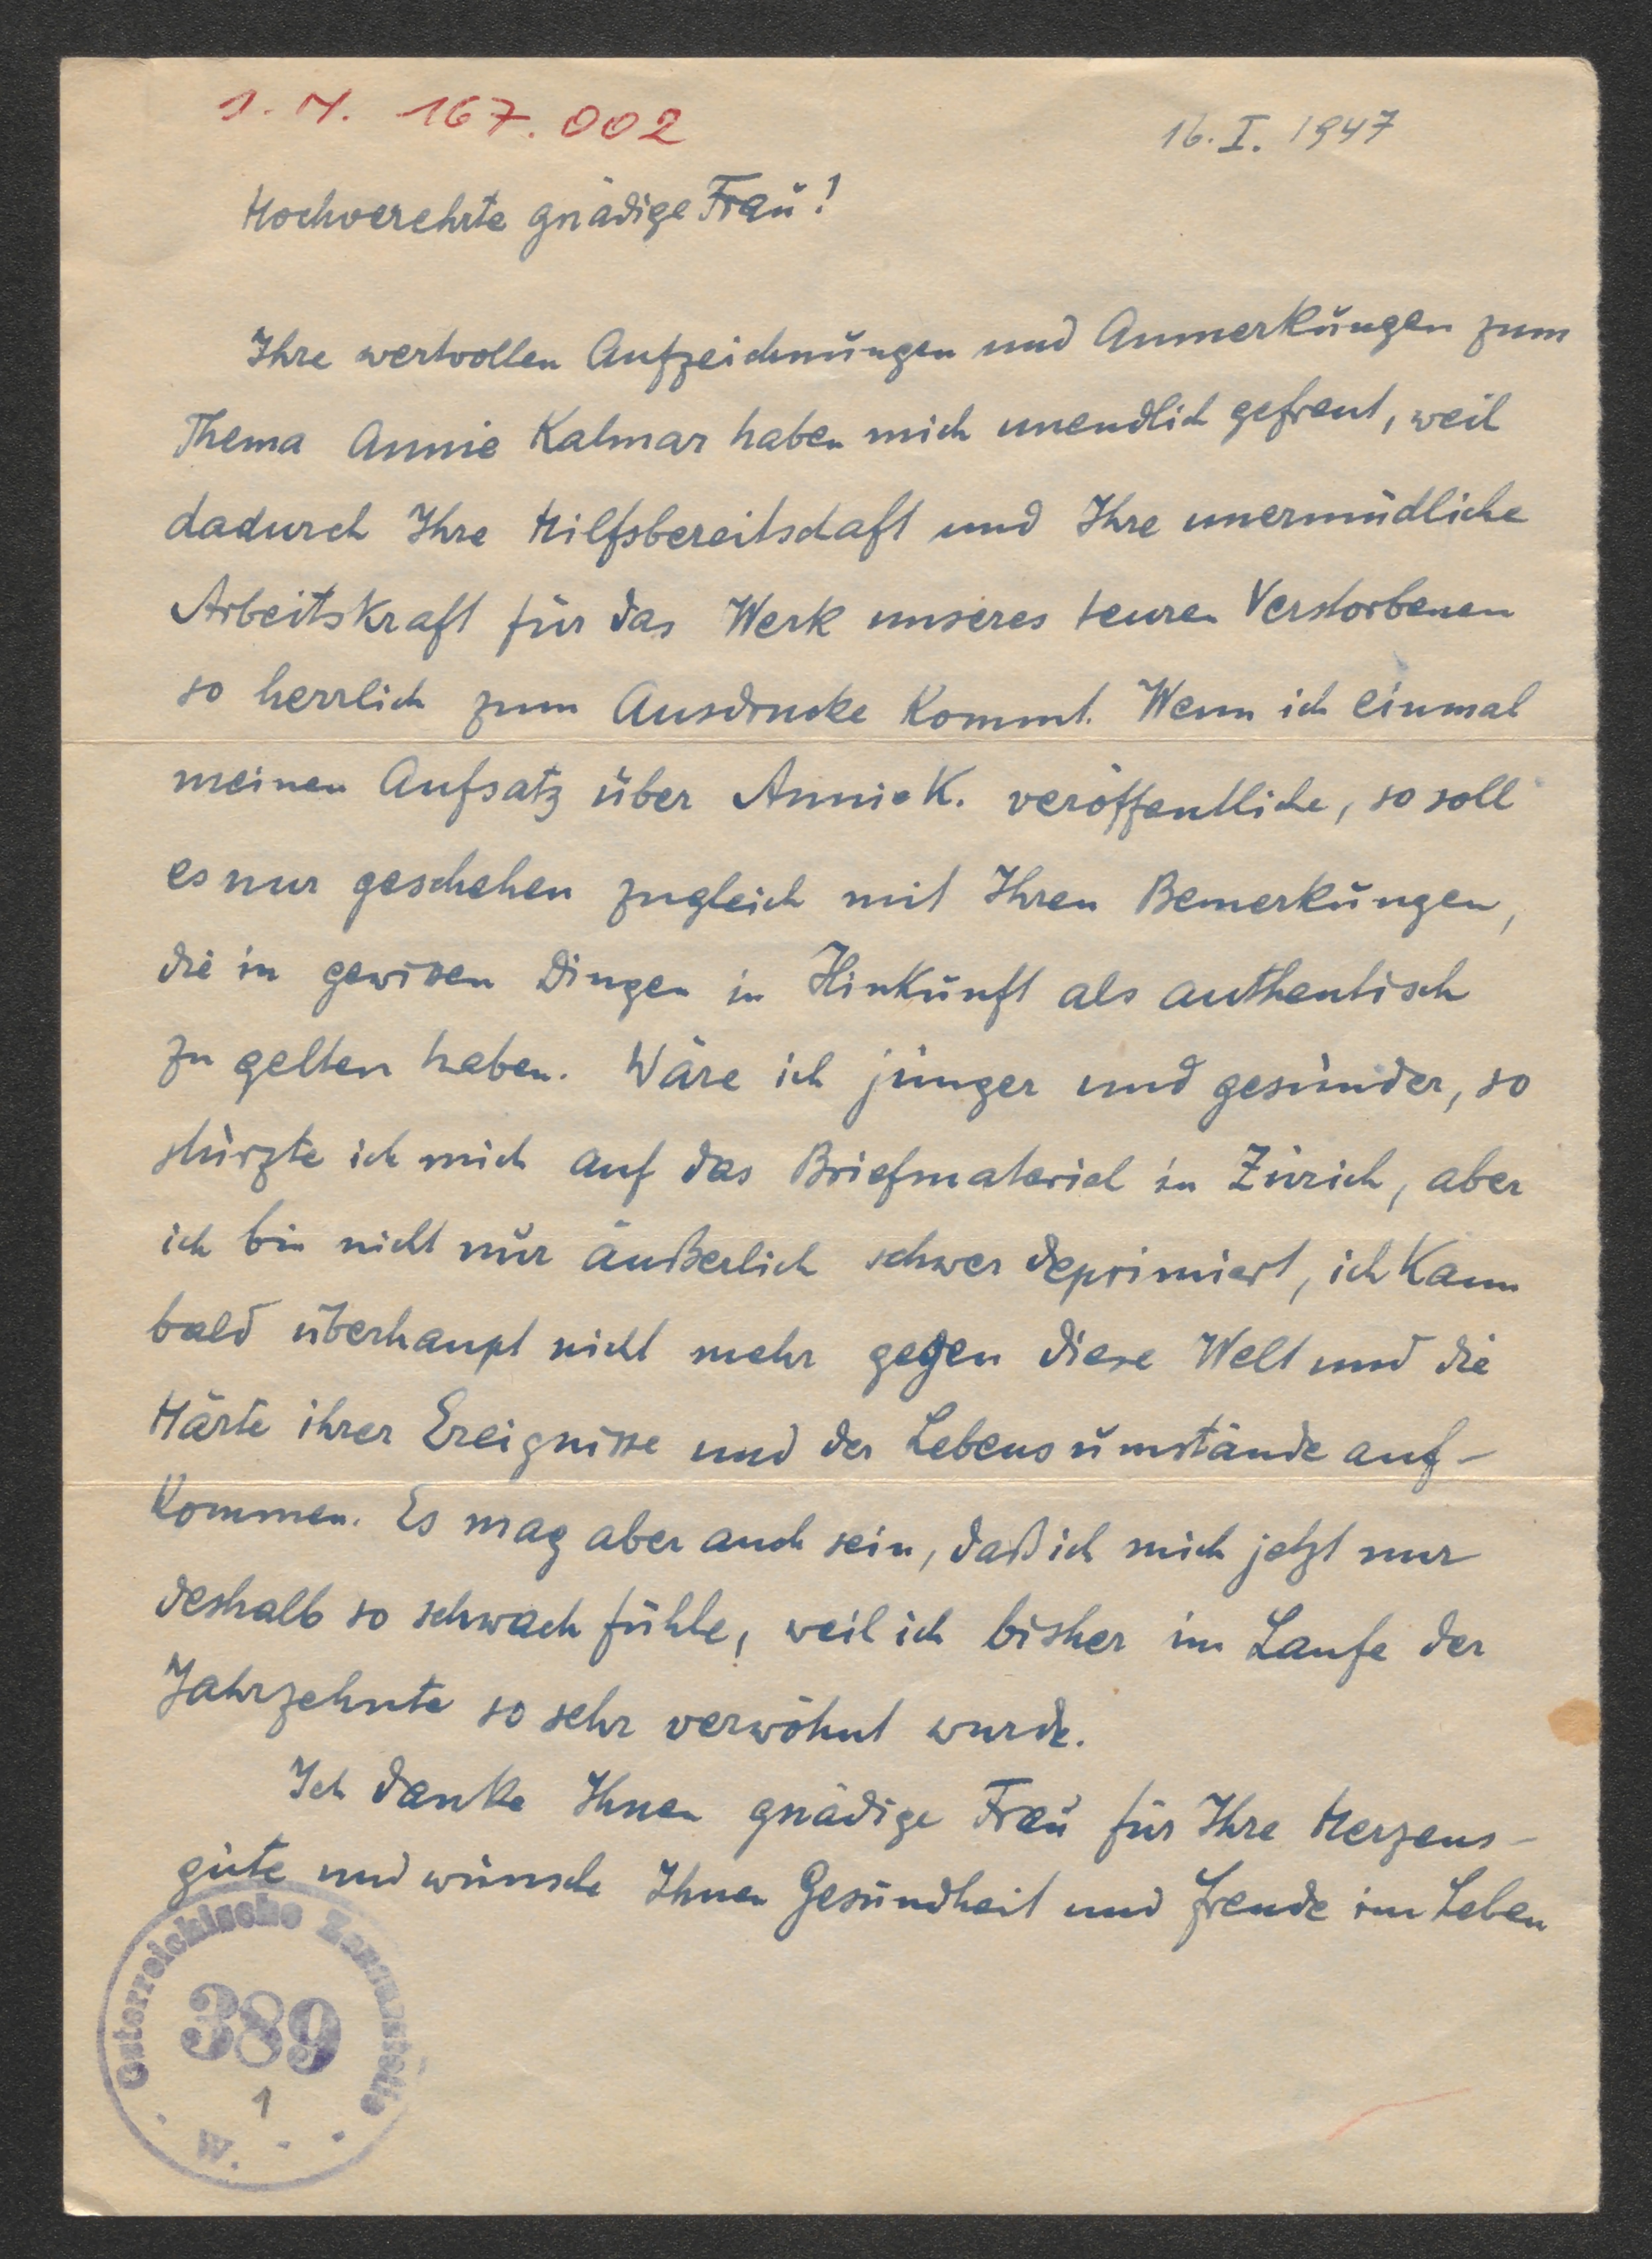 1. N. 167.002
16. I. 1947
Hochverehrte gnädige Frau!
Ihre wertvollen Aufzeichnungen und Anmerkungen zum
Thema Annie Kalmar haben mich unendlich gefreut, weil
dadurch Ihre Hilfsbereitschaft und Ihre unermüdliche
Arbeitskraft für das Werk unseres teuren Verstorbenen
so herrlich zum Ausdrucke kommt. Wenn ich einmal
meinen Aufsatz über Annie K. veröffentliche, so soll
es nur geschehen zugleich mit Ihren Bemerkungen,
die in gewissen Dingen in Hinkunft als authentisch
zu gelten haben. Wäre ich jünger und gesünder, so
stürzte ich mich auf das Briefmaterial in Zürich, aber
ich bin nicht nur äußerlich schwer deprimiert, ich kann
bald überhaupt nicht mehr gegen diese Welt und die
Härte ihrer Ereignisse und der Lebensumstände auf-
kommen. Es mag aber auch sein, daß ich mich jetzt nur
deshalb so schwach fühle, weil ich bisher im Laufe der
Jahrzehnte so sehr verwöhnt wurde.
Ich danke Ihnen gnädige Frau für Ihre Herzens-
güte und wünsche Ihnen Gesundheit und Freude im Leben
Österreichische Zensurstelle
389
1
W.